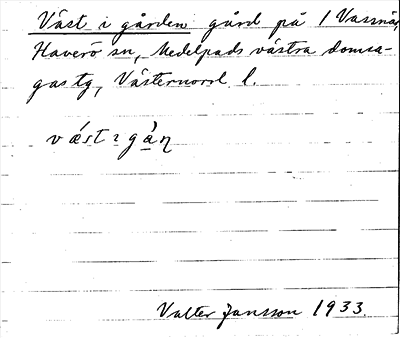 Väst i gården gård på 1 Vassnäs,
Haverö sn, Medelpads västra domsa-
gas tg, Västernorrl l.
vǽst ı gå̀ṇ
Valter Jansson 1933.